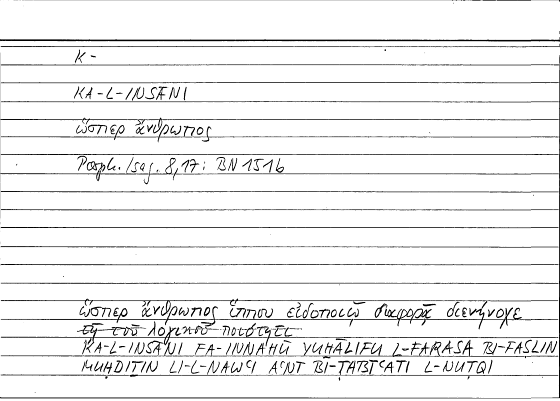 K-
KA-L-INSĀNI
ὥσπερ ἄνθρωπος
Porph. Isag. 8,17; BN 151b
ὥσπερ ἄνθρωπος ἵππου εἰδοποιῷ διαφορᾷ διενήνοχε
τῇ τοῦ λογικοῦ ποιότητι
KA-L-INSĀNI FA-INNAHŪ YUHĀLIFU L-FARASA BI-FAṢLIN
MUḤDIṮIN LI-L-NAWʿI AʿNĪ BI-ṬABĪʿATI L-NUṬQI